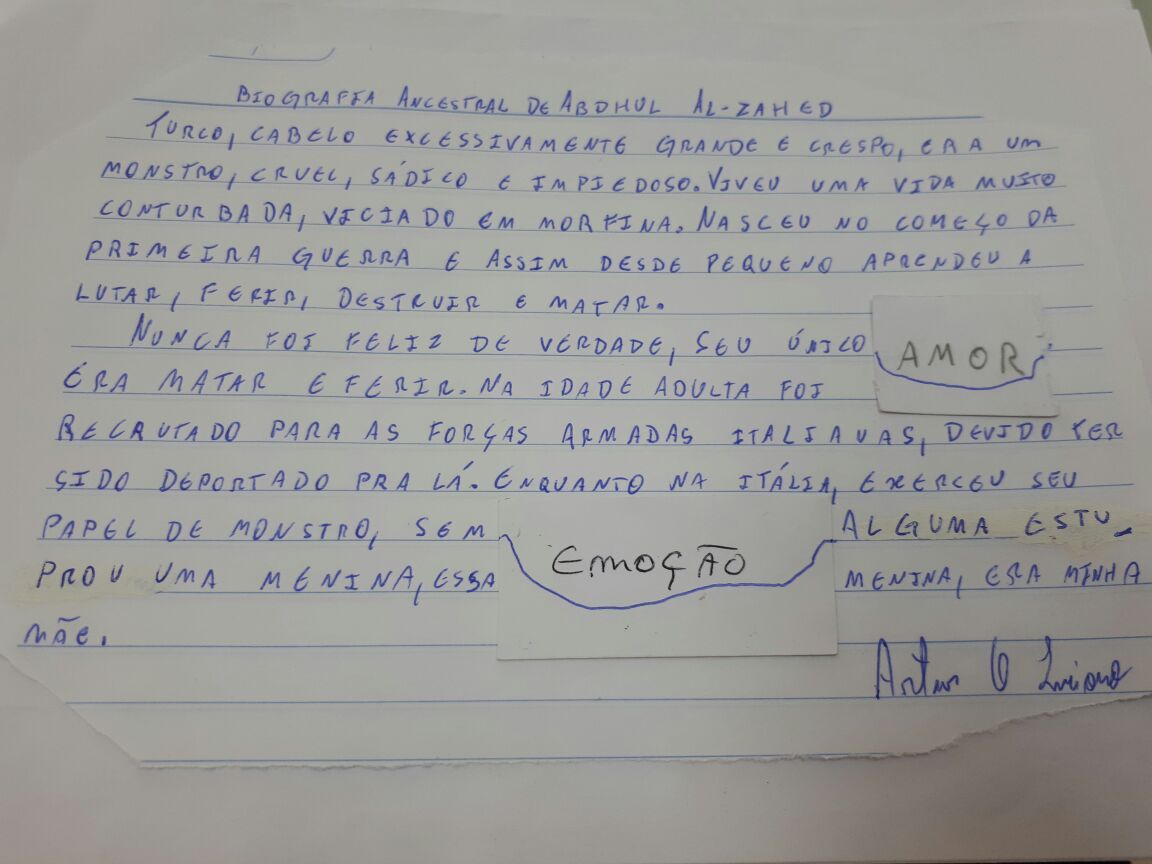 BIOGRAFIA ANCESTRAL DE ABDHUL AL-ZAHED
TURCO, CABELO EXCESSIVAMENTE GRANDE E CRESPO, ERA UM
MONSTRO, CRUEL, SÁDICO E IMPIEDOSO. VIVEU UMA VIDA MUITO
CONTURBADA, VICIADO EM MORFINA. NASCEU NO COMEÇO DA
PRIMEIRA GUERRA E ASSIM DESDE PEQUENO APRENDEU A
LUTAR, FERIR, DESTRUIR E MATAR.
NUNCA FOI FELIZ DE VERDADE, SEU ÚNICO AMOR
ÉRA MATAR E FERIR. NA IDADE ADULTA FOI
RECRUTADO PARA AS FORÇAS ARMADAS ITALIAVAS, DEVIDO TER
SIDO DEPORTADO PRA LÁ. ENQUANTO NA ITÁLIA, EXERCEU SEU
PAPEL DE MONSTRO, SEM EMOÇÃO ALGUMA ESTU-
PROU UMA MENINA, ESSA MENINA, ERA MINHA
MÃE.
Artur O Luciano